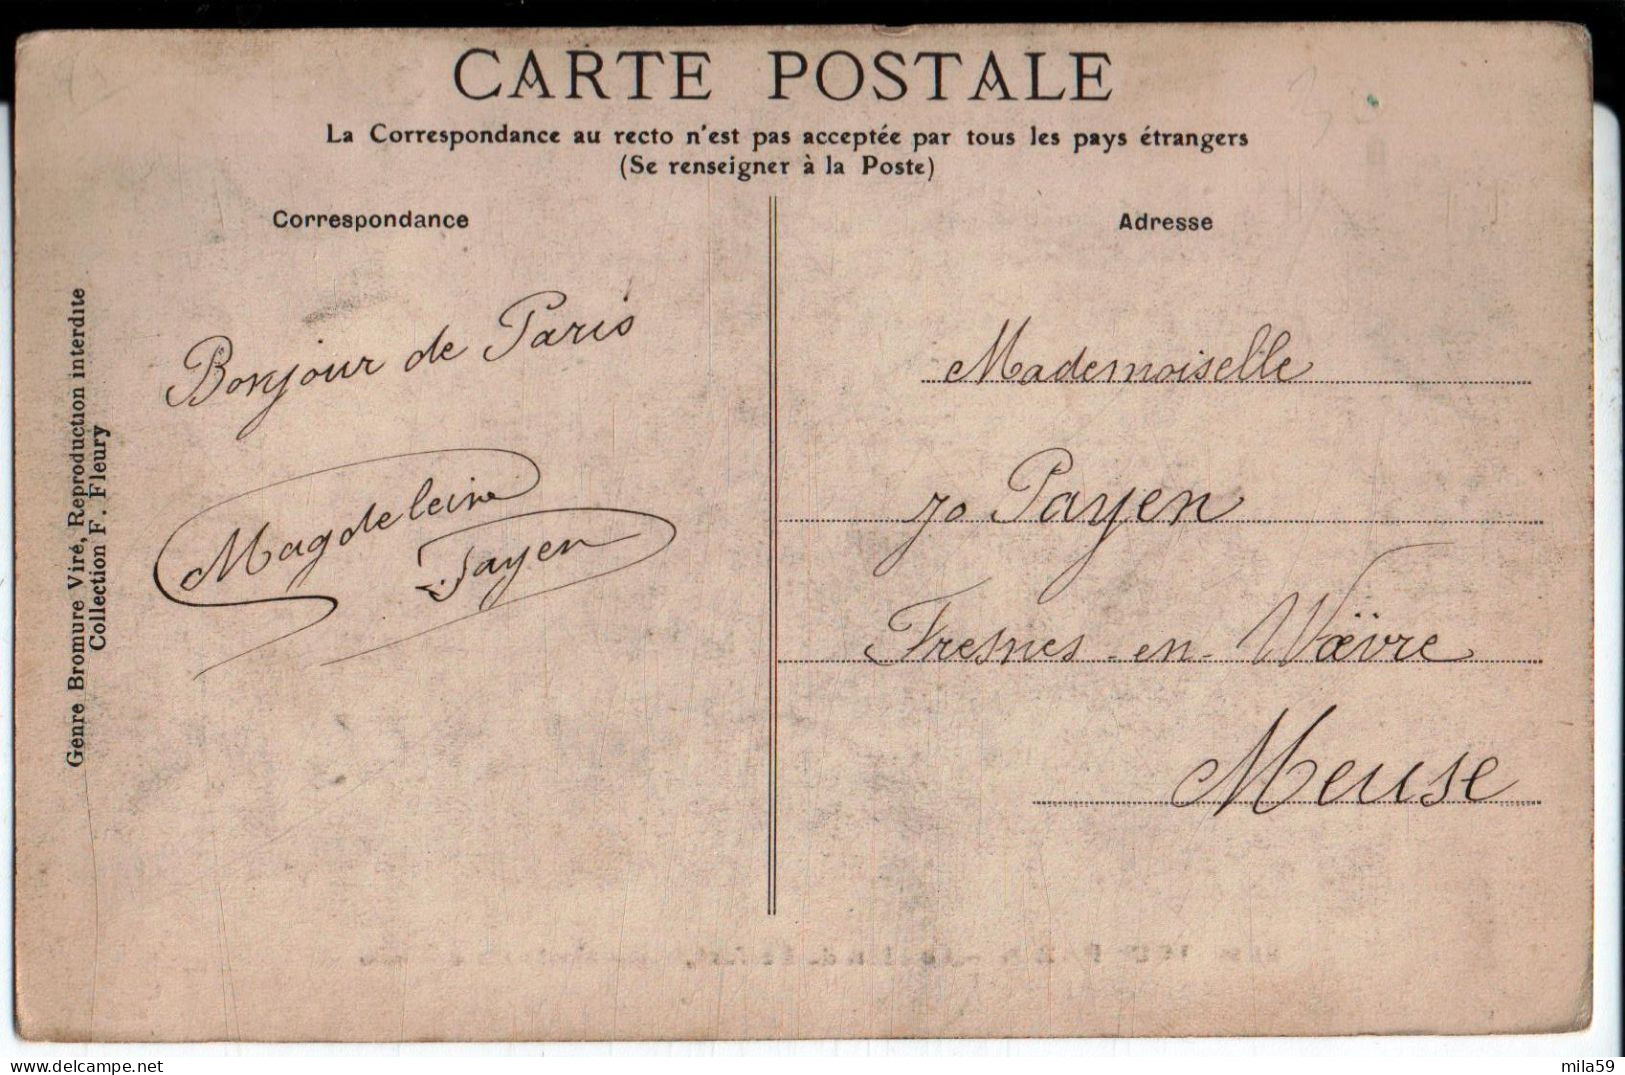 CARTE POSTALE
La Correspondance au recto n'est pas acceptée par tous les pays étrangers
(Se renseigner à la Poste)
Correspondance
Bonjour de Paris
Magdeleine
Payen
Adresse
Mademoiselle
Payen
Fresnes-en-Wöevre
Meuse
Genre Bromure Viré, Reproduction interdite
Collection F. Fleury
delcampe.net
mila59